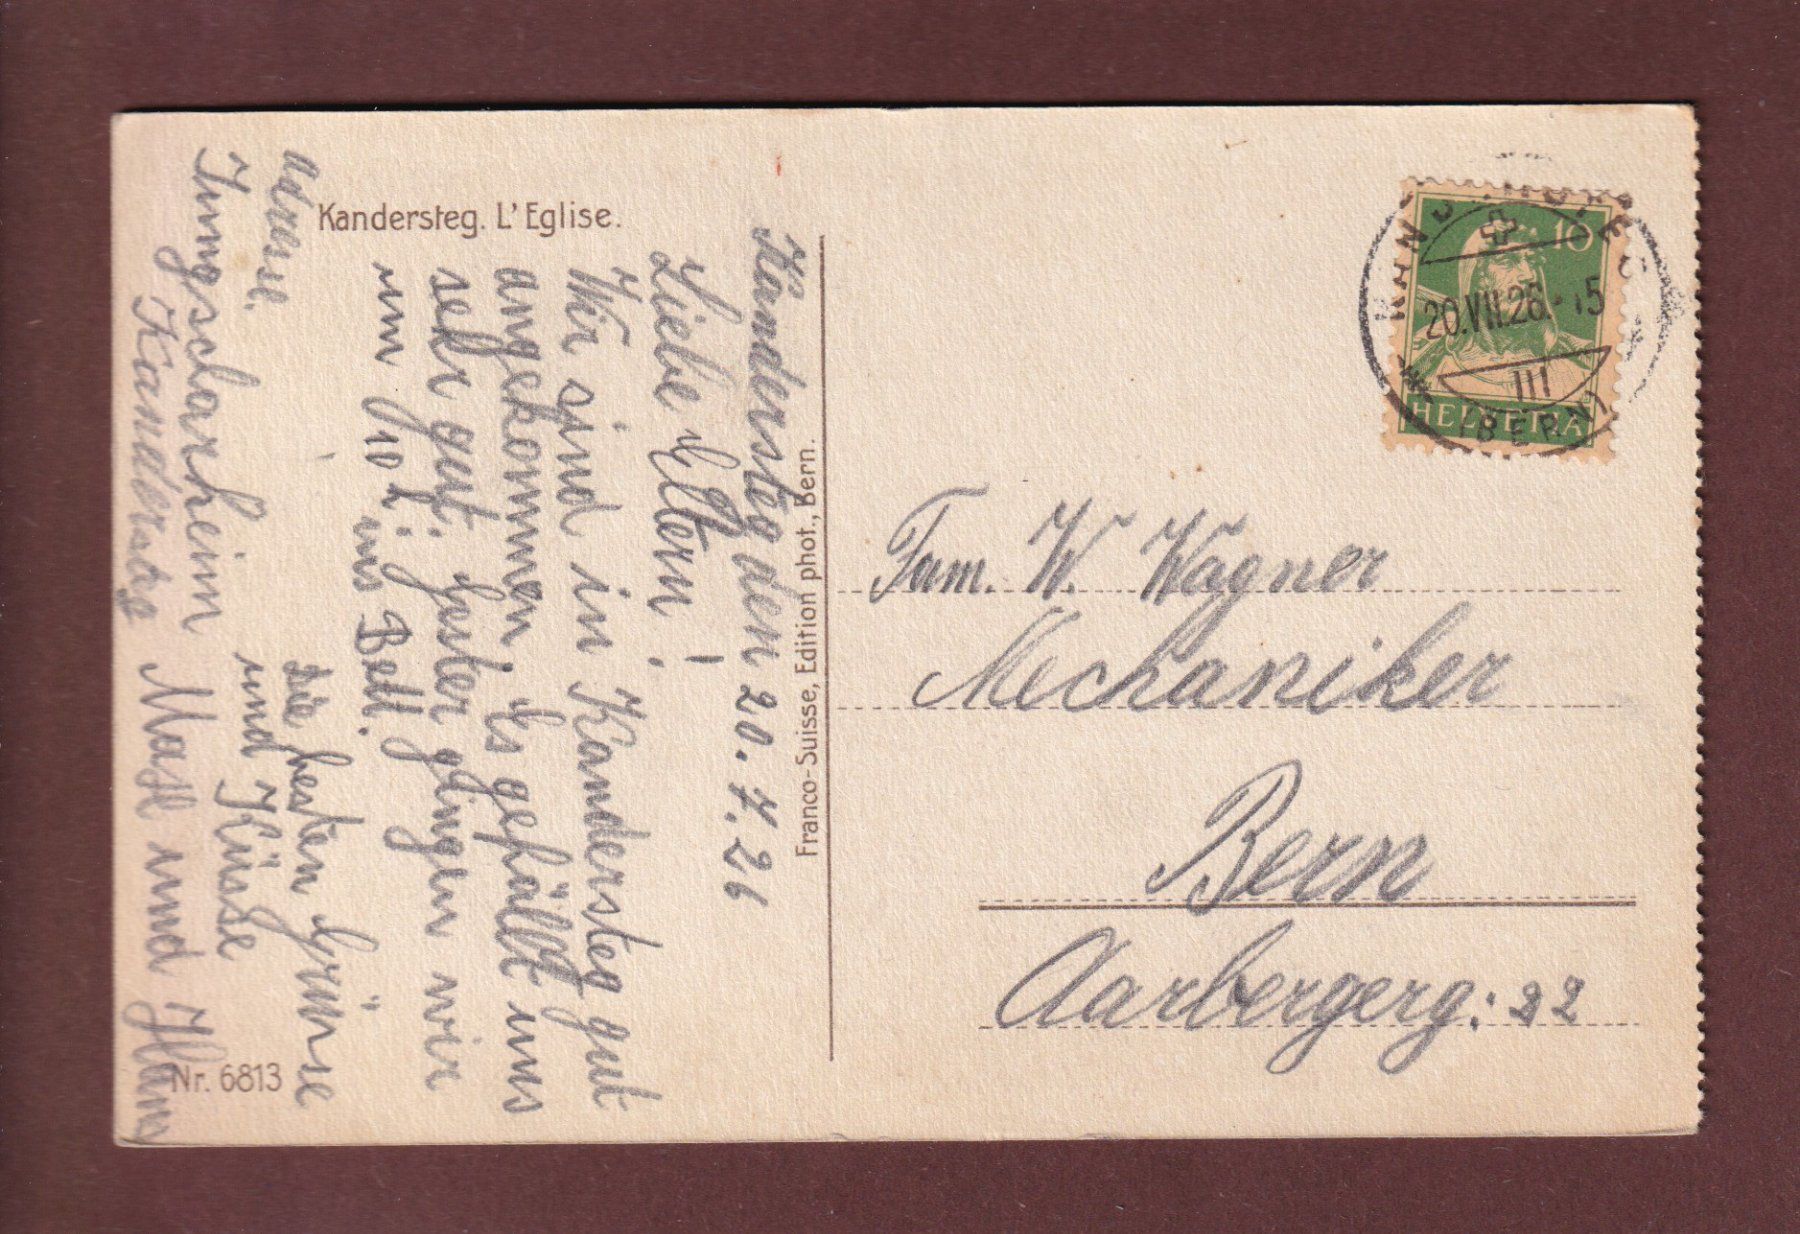 Kandersteg. L'Eglise.
Kandersteg den 20. 7. 26
Liebe Eltern!
Wir sind in Kandersteg gut
angekommen, Es gefällt uns
sehr gut. Gester gingen wir
um 10 h. ins Bett.
Die besten Grüsse
und Küsse
Adresse.
Jungscharheim
Kandersteg
Nr. 6813
Franco-Suisse, Edition phot., Bern.
20.VII.26.-15
III
(BERN)
10
HELVETIA
Fam. W. Wagner
Mechaniker
Bern
Aarbergerg: 22